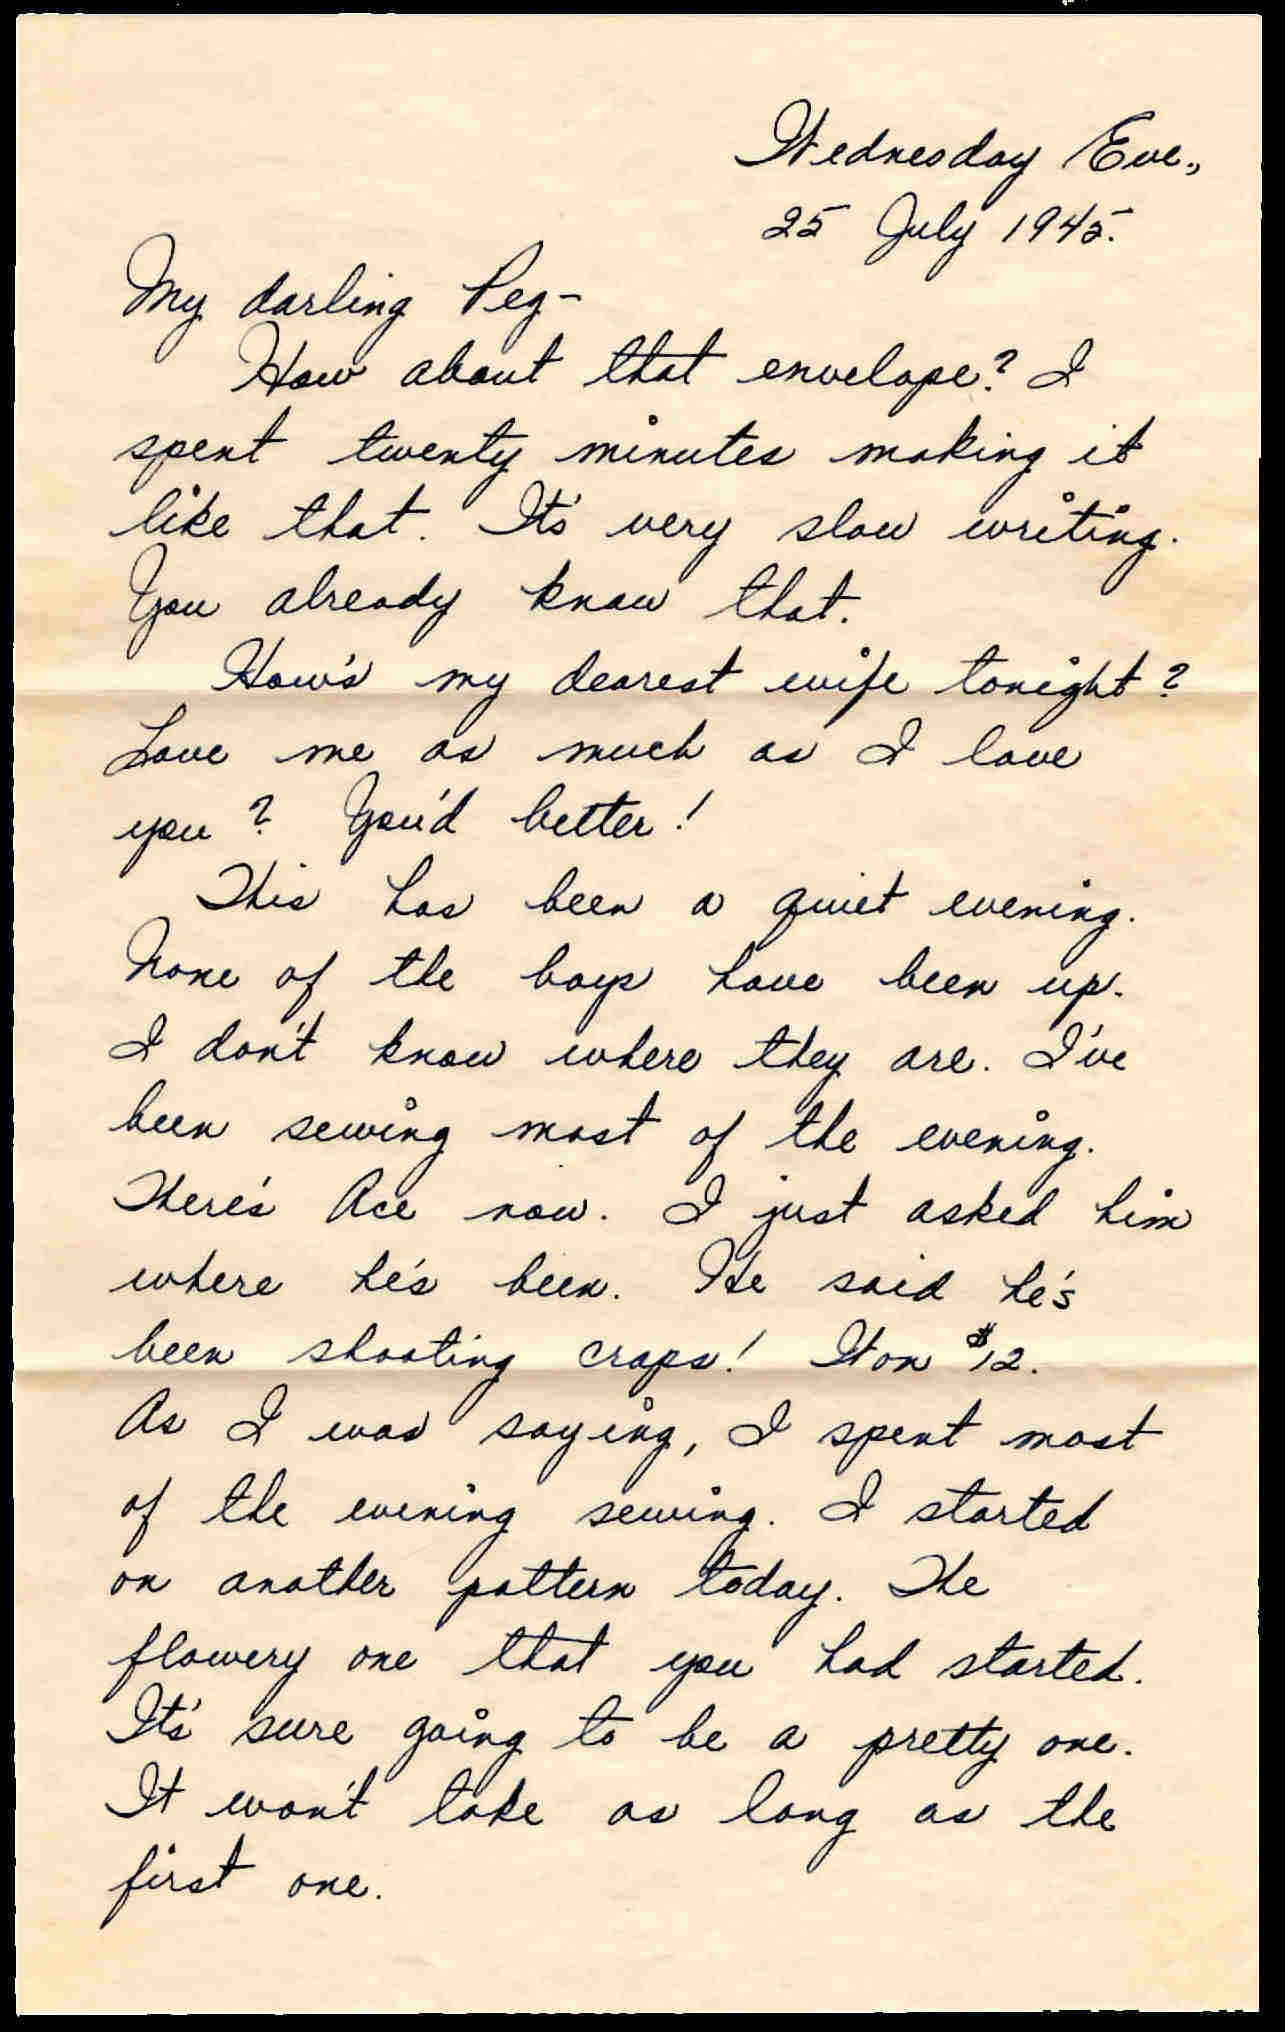 Wednesday Eve.,
25 July 1945.
My darling Peg-
How about that envelope? I
spent twenty minutes making it
like that. It's very slow writing.
You already know that.
How's my dearest wife tonight?
Love me as much as I love
you? You'd better!
This has been a quiet evening.
None of the boys have been up.
I don't know where they are. I've
been sewing most of the evening.
There's Ace now. I just asked him
where he's been. He said he's
been shooting craps! Won $12.
As I was saying, I spent most
of the evening sewing. I started
on another pattern today. The
flowery one that you had started.
It's sure going to be a pretty one.
It won't take as long as the
first one.